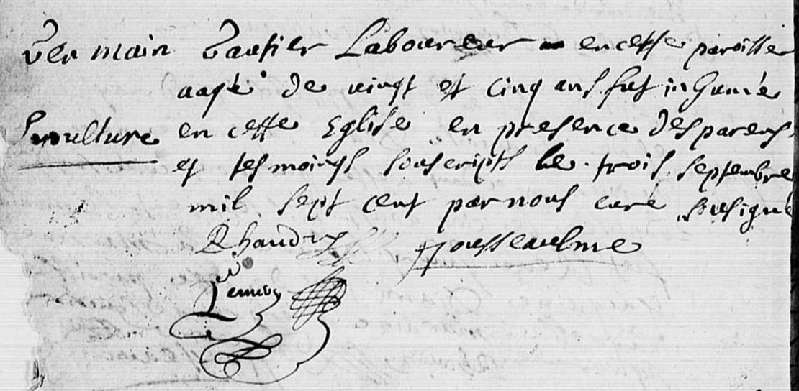 Germain Gautier Laboureur en cette paroisse
aagé de vingt et cinq ans fut inhumé
Sepulture en cette Eglise en presence des parens
et tesmoings souscripts le trois septembre
mil sept cent par nous curé soussigné
R handry Housseaulme